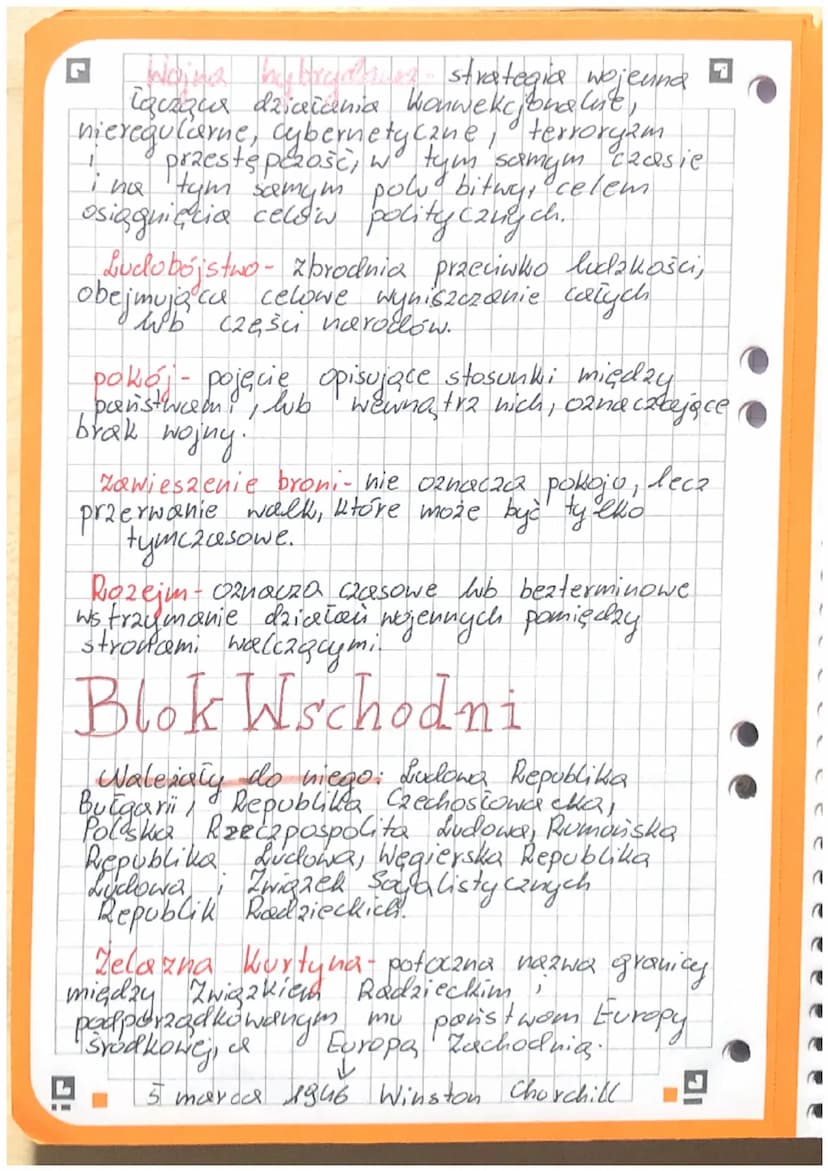 Wojna hybrydowa - strategia wojenna
łącząca działania konwekcjonalne,
nieregularne, cybernetyczne, terroryzm
i przestępczość, w tym samym czasie
i na tym samym polu bitwy, celem
osiągnięcia celów politycznych.
Ludobójstwo - zbrodnia przeciwko ludzkości,
obejmująca celowe wyniszczanie całych
lub części narodów.
pokój - pojęcie opisujące stosunki między
państwami, lub wewnątrz nich, oznaczające
brak wojny.
Zawieszenie broni - nie oznacza pokoju, lecz
przerwanie walk, które może być tylko
tymczasowe.
Rozejm - oznacza czasowe lub bezterminowe
wstrzymanie działań wojennych pomiędzy
stronami walczącymi.
Blok Wschodni
Należały do niego: Ludowa Republika
Bułgarii, Republika Czechosłowacka,
Polska Rzeczpospolita Ludowa, Rumuńska
Republika Ludowa, Węgierska Republika
Ludowa i Związek Socjalistycznych
Republik Radzieckich.
Żelazna Kurtyna - potoczna nazwa granicy
między Związkiem Radzieckim i
podporządkowanym mu państwom Europy
Środkowej, a Europą Zachodnią.
↓
5 marca 1946 Winston Churchill